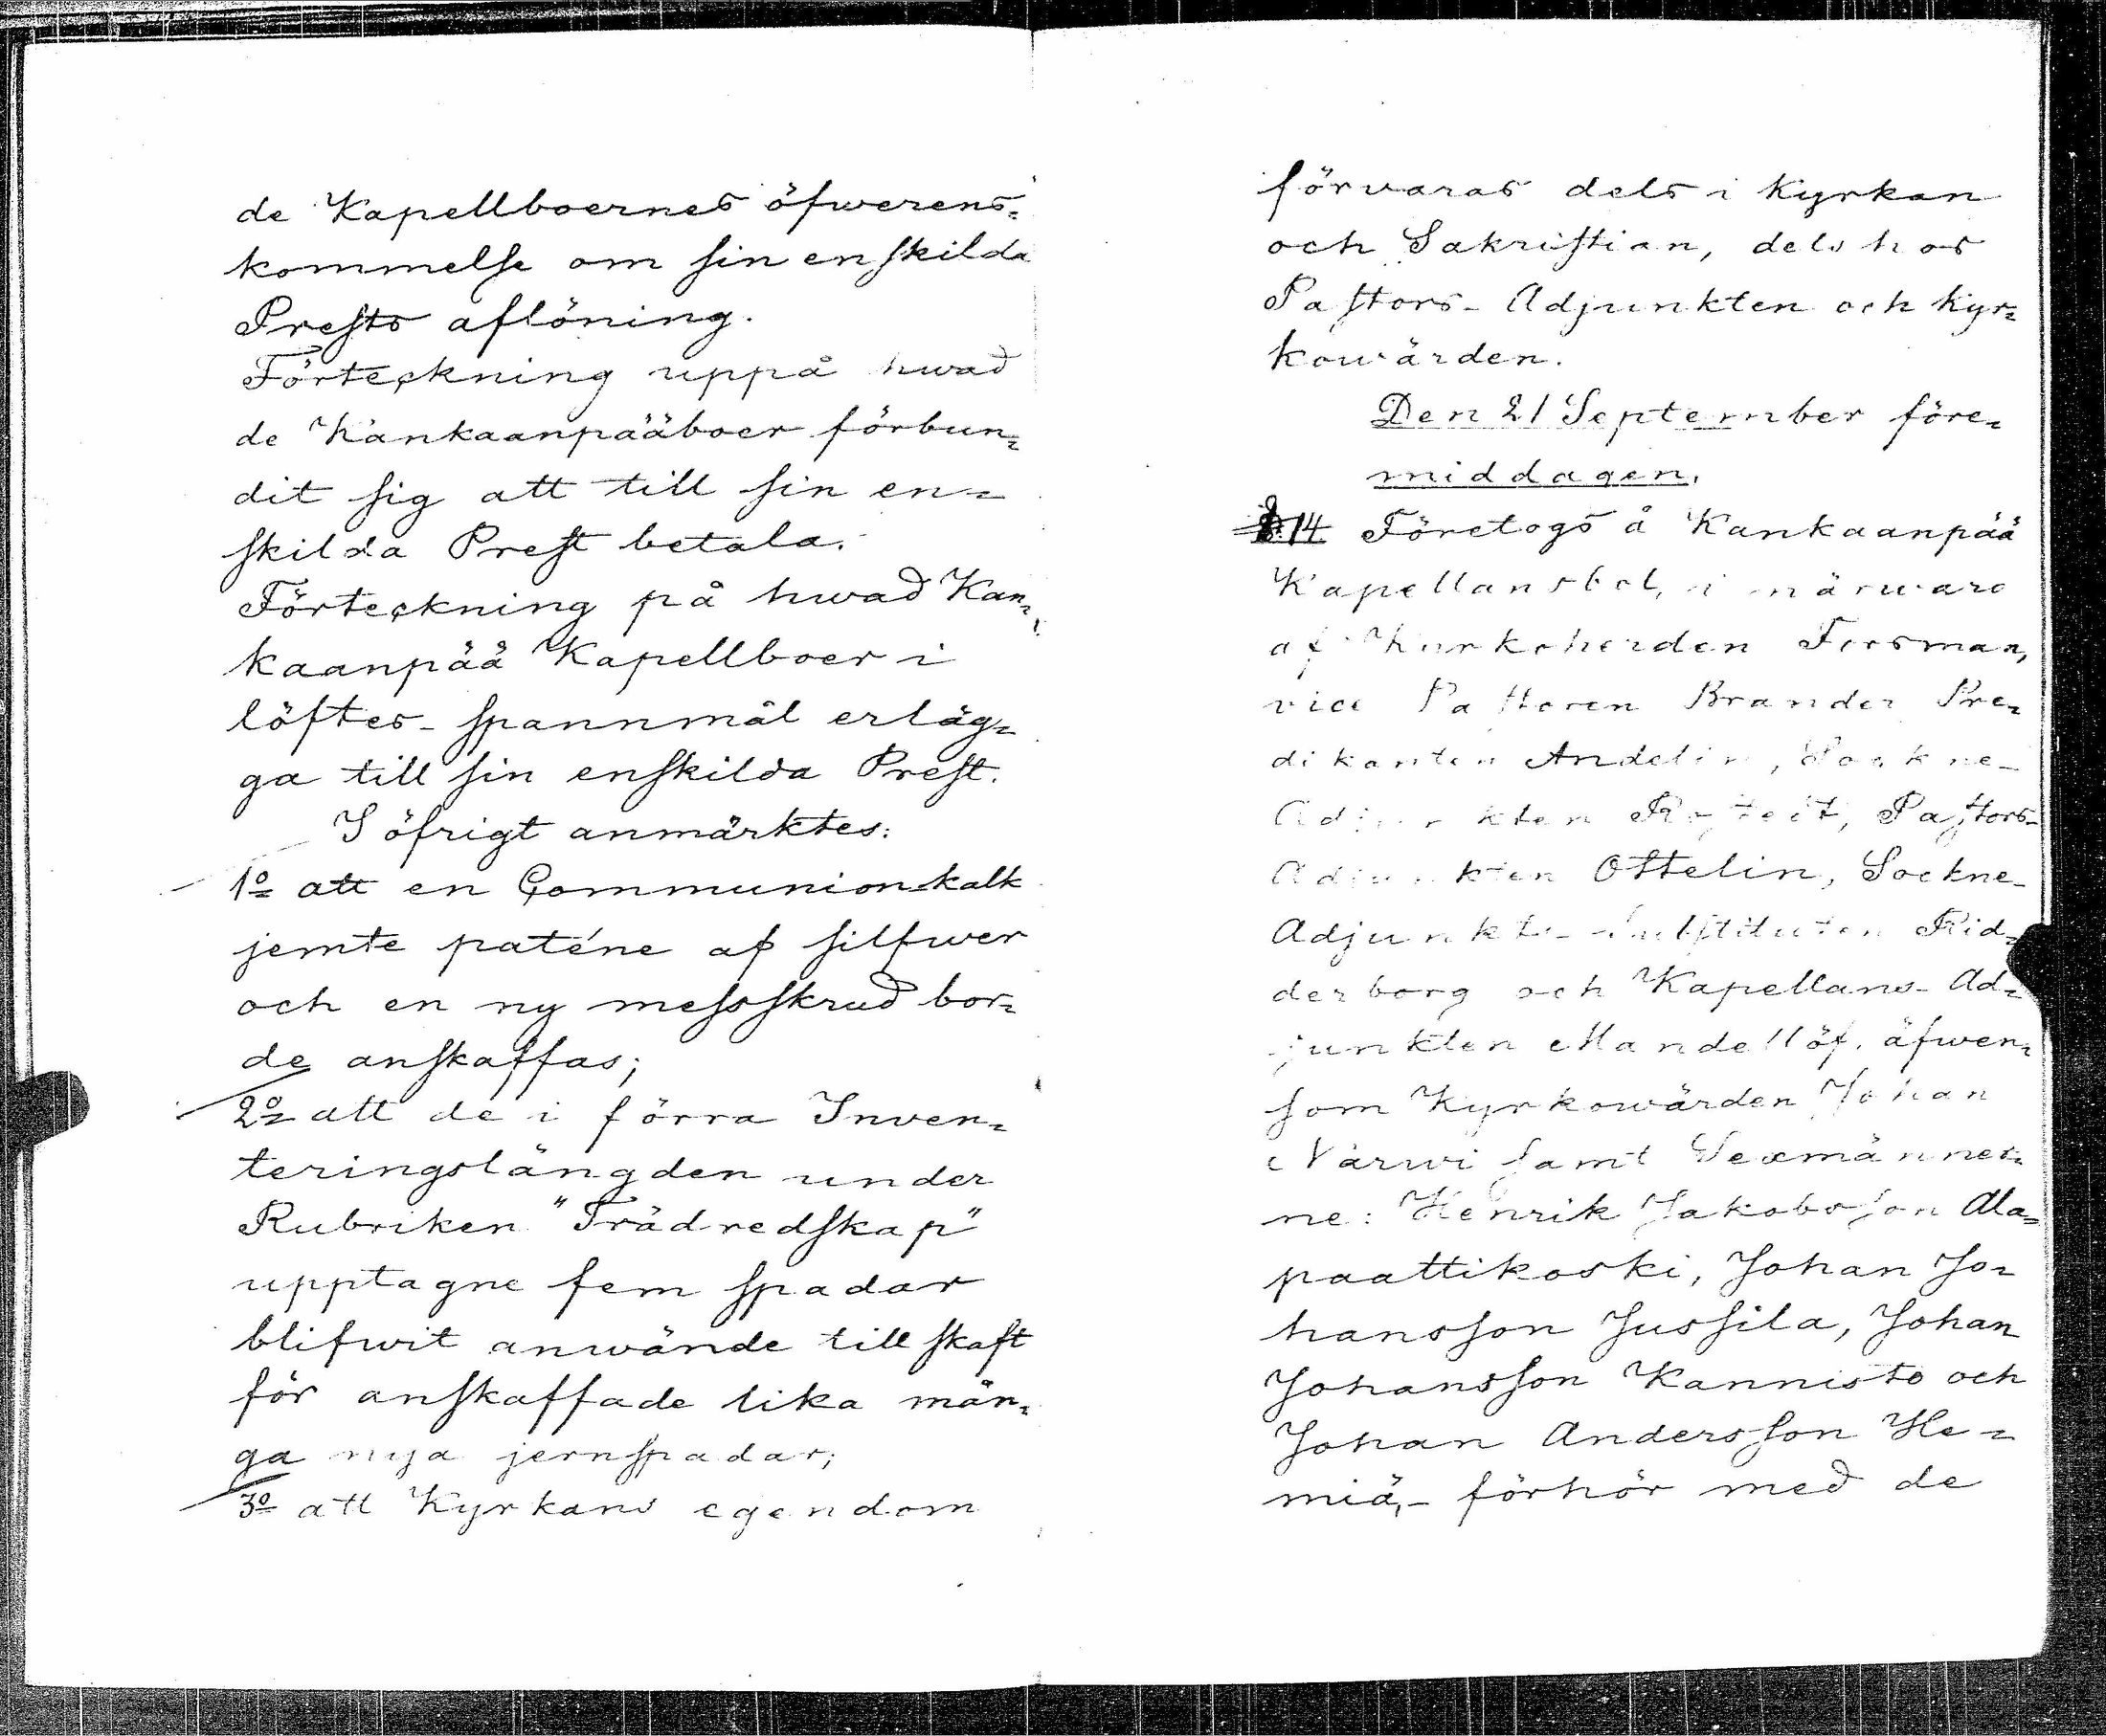 de Kapellboernes öfwerens=
kommelse om sin enskilda
Prests aflöning.
Förteckning uppå hwad
de Kankaanpääboer förbun=
dit sig att till sin en=
skilda Prest betala.
Förteckning på hwad Kan=
kaanpää Kapellboer i
löftes- spannmål erläg=
ga till sin enskilda Prest.
I öfrigt anmärktes:
1o att en Communionskalk
jemte paténe af silfwer
och en ny messskrud bor=
de anskaffas;
2o att de i förra Inven=
teringslängden under
Rubriken "Trädredskap"
upptagne fem spadar
blifwit anwände till skaft
för anskaffade lika mån=
ga nya jernspadar;
3o att Kyrkans egendom
förvaras dels i Kyrkan
och Sakristian, dels hos
Pastors- Adjunkten och Kyr=
kowärden.
Den 21 September före=
middagen.
§ 14 Företogs å Kankaanpää
Kapellansbol, i närwaro
af Kyrkoherden Forsman,
vice Pastoren Brander Pre=
dikanten Andelin, Sockne-
Adjunkten Pastors-
Adjunkten Ottelin, Sockne-
Adjunkts- Substituten Rid=
derborg och Kapellans- Ad=
junkten Mandellöf, äfwen=
som Kyrkowärden Johan
Narwi samt Sexmänner=
ne: Henrik Jakobsson Ala=
paattikoski, Johan Jo=
hansson Jussila, Johan
Johansson Kannisto och
Johan Andersson He=
miä,- förhör med de